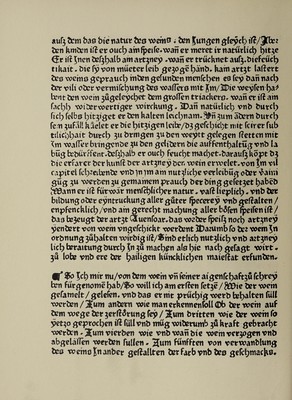 auß dem das die natur des weins / den Jungen gleych ist / Aber
den kinden ist er ouch ain speise. wañ er meret ir natürlich hitze
Er ist Jnen deßhalb am artzney. wañ er trücknet auß. die feüch
tikait. die sÿ von müeter leib gezogē hānd. kain artzt lastert
des weins geprauch in den gesunden menschen es seÿ dañ nach
der vili oder vermischung des wassers mit Jm / Die weysen ha
bent den wein zůgeleychet dem grossen triackers. wañ er ist ain
sach wider wertiger wirckung. Dañ natürlich vnd durch
sich selbs hitziget er den kalten leichnam. Vñ zum andern durch
sein zufäll kälet er die hitzigen leib / dz geschicht mit seiner sub
tilichait durch zu dringen zu den weyt gelegen stetten mit
Jm wasser bringende zu den gelidern die auffenthaltüg vnd la
büg bedürffent. deßhalb er ouch feuchte machet. darauß köpt dz
die erfarer der kunst der artzney der. wein erwelet. von Jm vil
capitel schreibende vnd in jm am nutzliche verleibüg oder vaini
güg zu werden zu gemainem prauch der ding gesetzet habēd
Wann er ist für war menschlicher natur. vast lieplich. vnd der
bildung oder eyntruckung aller güter specerey vnd gestalten /
enpfencklich / vnd am gerecht machung aller bösen speisen ist /
das bezeugt der artzt Auensoar. das weder speiß noch artzney
yendert von wein vngeschickt werdent Darumb so der wein Jn
ordnung zůhalten wirdig ist / Sind etlich nutzlich vnd artzney
lich beraitung durch Jn zů machen als hie nach gesagt wirt.
zů lobe vnd ere der hailigen künicklichen maiestat erfunden.
So ich mir nu / von dem wein vñ seiner aigenschafft zů schrey
ben fürgenomē hab / So will ich am ersten setzē / Wie der wein
gesamelt / gelesen. vnd das er mit früchtig werd behalten süll
werden / Zum andern wie man erkennen soll Ob der wein auf
dem wege der zerstörung sey / Zum dritten wie der wein so
yetzo geprochen ist süll vnd müg widerumb zů kraft gebracht
werden. Zum vierden wie vnd wañ die wein verzogen vnd
abgelassen werden sullen. Zum fünfften von verwandlung
des weins in ander gestallten der farb vnd des geschmacks.